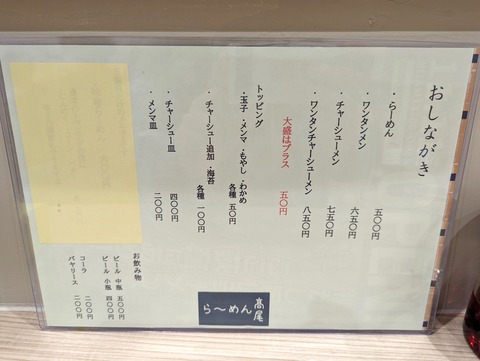 おしながき
・らーめん 五〇〇円
・ワンタンメン 六五〇円
・チャーシューメン 七五〇円
・ワンタンチャーシューメン 八五〇円
大盛はプラス 五〇円
トッピング
・玉子・メンマ・もやし・わかめ 各種 五〇円
・チャーシュー追加・海苔 各種 一〇〇円
・チャーシュー皿 四〇〇円
・メンマ皿 二〇〇円
お飲み物
ビール 中瓶 五〇〇円
ビール 小瓶 四〇〇円
コーラ 二〇〇円
バヤリース 二〇〇円
らーめん 高尾